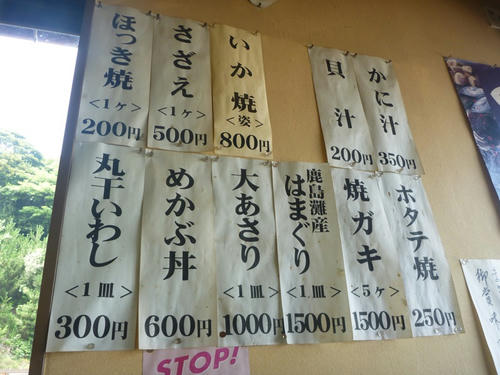 ほっき焼
<1ヶ>
200円
さざえ
<1ヶ>
500円
いか焼
<姿>
800円
貝汁
200円
かに汁
350円
丸干いわし
<1皿>
300円
めかぶ丼
600円
大あさり
<1皿>
1000円
鹿島灘産
はまぐり
<1皿>
1500円
焼ガキ
<5ヶ>
1500円
ホタテ焼
250円
STOP!